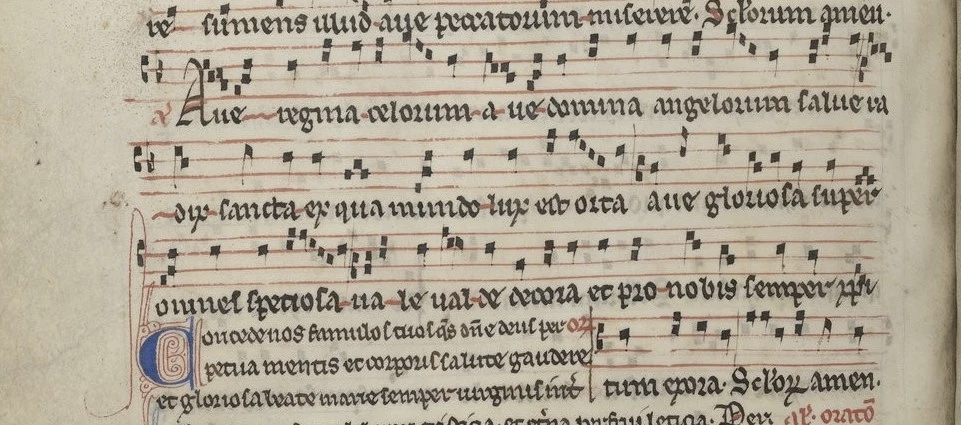 re sumens illud aue peccatorum miserere. Sclorum amen.
Aue regina celorum a ue domina angelorum salue ra
dix sancta ex qua mundo lux est orta aue gloriosa super
omnes speciosa ua le ual de decora et pro nobis semper xpi
Concede nos famulos tuos qs dne deus per or
petua mentis et corporis salute gaudere
tum exora. Sclorꝝ amen.
et gloriosa beate marie semper uirginis int
leticia. Per. orato